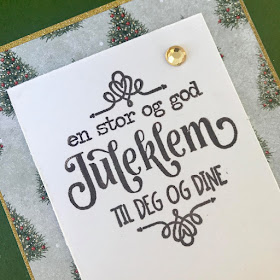 en stor og god
Juleklem
TIL DEG OG DINE